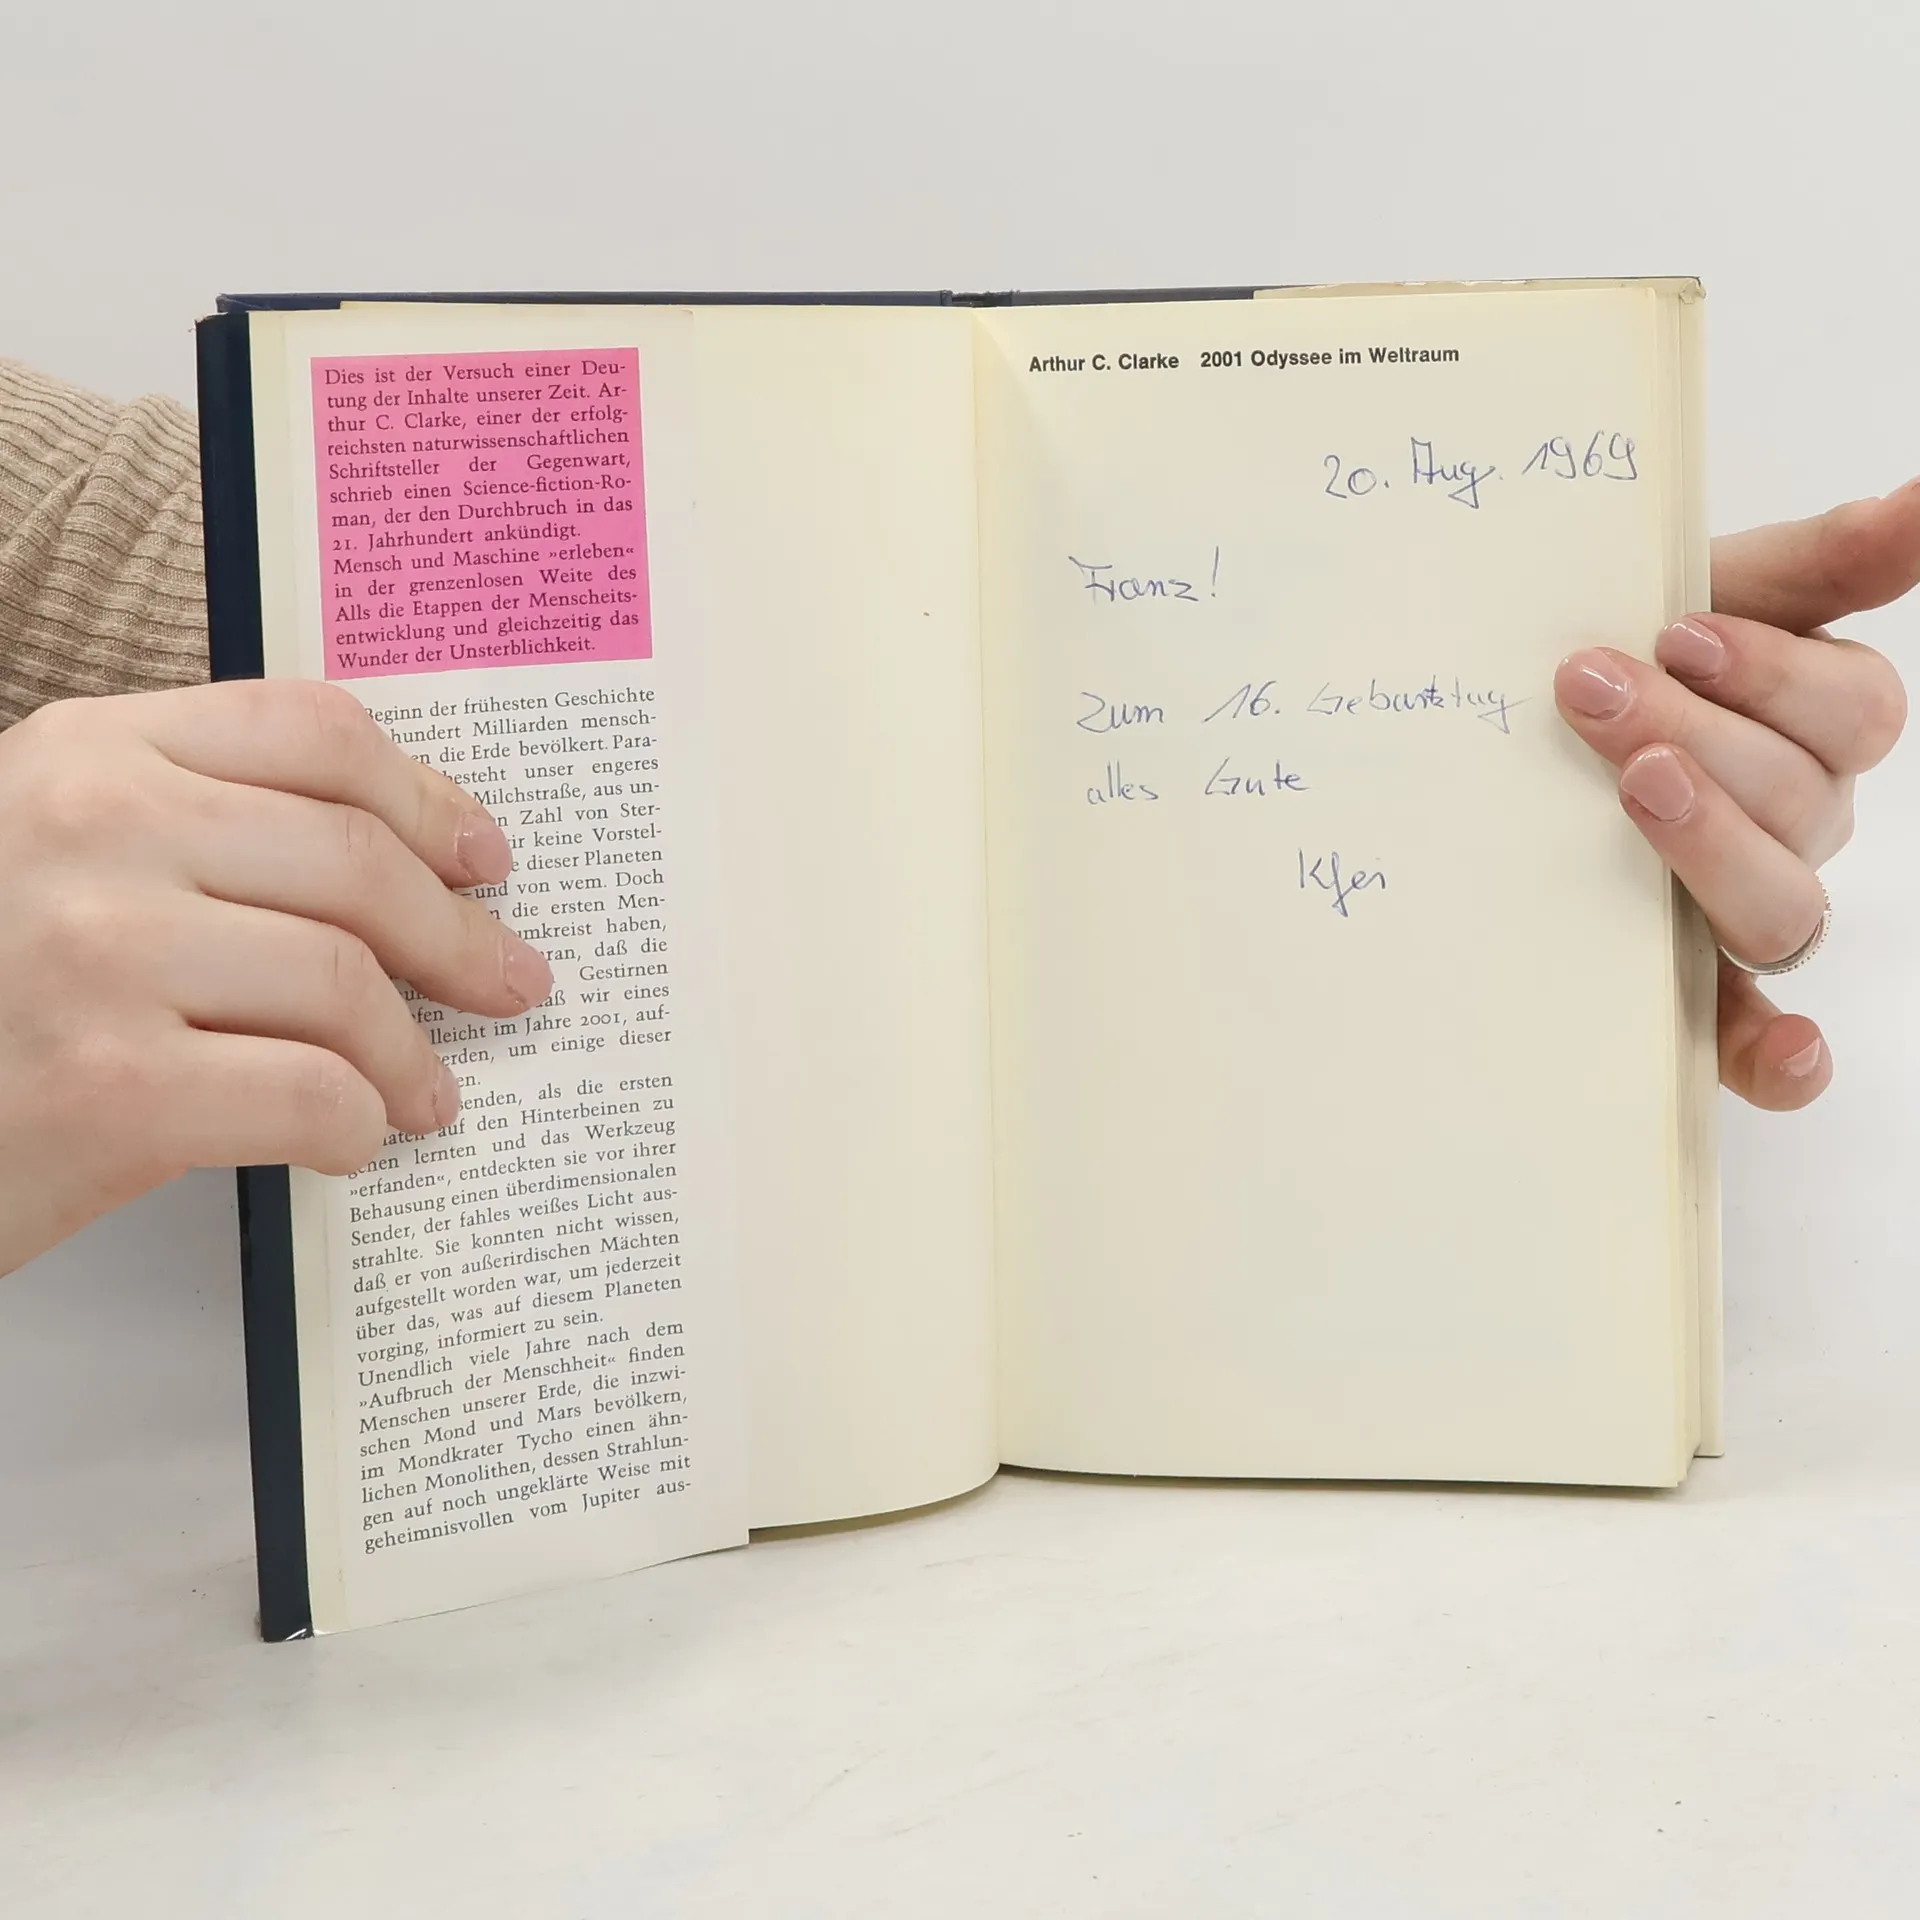 Dies ist der Versuch einer Deu-
tung der Inhalte unserer Zeit. Ar-
thur C. Clarke, einer der erfolg-
reichsten naturwissenschaftlichen
Schriftsteller der Gegenwart,
schrieb einen Science-fiction-Ro-
man, der den Durchbruch in das
21. Jahrhundert ankündigt.
Mensch und Maschine »erleben«
in der grenzenlosen Weite des
Alls die Etappen der Menscheits-
entwicklung und gleichzeitig das
Wunder der Unsterblichkeit.
Beginn der frühesten Geschichte
hundert Milliarden mensch-
die Erde bevölkert. Para-
besteht unser engeres
Milchstraße, aus un-
Zahl von Ster-
keine Vorstel-
dieser Planeten
–und von wem. Doch
die ersten Men-
umkreist haben,
daß die
Gestirnen
wir eines
im Jahre 2001, auf-
um einige dieser
als die ersten
auf den Hinterbeinen zu
gehen lernten und das Werkzeug
»erfanden«, entdeckten sie vor ihrer
Behausung einen überdimensionalen
Sender, der fahles weißes Licht aus-
strahlte. Sie konnten nicht wissen,
daß er von außerirdischen Mächten
aufgestellt worden war, um jederzeit
über das, was auf diesem Planeten
vorging, informiert zu sein.
Unendlich viele Jahre nach dem
»Aufbruch der Menschheit« finden
Menschen unserer Erde, die inzwi-
schen Mond und Mars bevölkern,
im Mondkrater Tycho einen ähn-
lichen Monolithen, dessen Strahlun-
gen auf noch ungeklärte Weise mit
geheimnisvollen vom Jupiter aus-
Arthur C. Clarke 2001 Odyssee im Weltraum
20. Aug. 1969
Franz!
Zum 16. Geburtstag
alles Gute